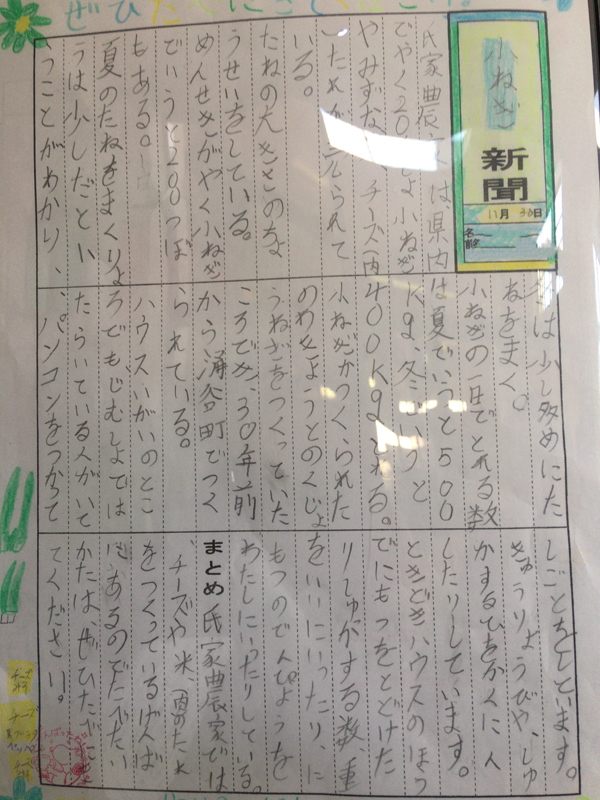 小ねぎ
新聞
11月30日
名前
は県内
でやく20 しょ小ねぎ
やみずな 、チーズ
られて
いる。
たねの大きさのちょ
うせいをしている。
めんせきがやく小ねぎ
でいうと200つぼ
もある。
夏のたねをまくりょ
うは少しだとい
うことがわかり、
冬は少し多めにた
ねをまく。
小ねぎの一日でとれる数
は夏でいうと500
Kg 冬でいうと
400Kgとれる。
小ねぎがつくられた
のわきょうとのくじょ
うねぎをつくっていた
ころでき、30年前
から涌谷町でつく
られている。
ハウスいがいのとこ
ろでもじむしょでは
たらいている人がいて
、パソコンをつかって
しごとをしています。
きゅうりょうびや、しゅ
かするひをかくにん
したりしています。
ときどきハウスのほう
でにもつをとどけた
りしゅかする数、重
をいいにいったり、に
もつのでんぴょうを
わたしにいったりしている。
まとめ 氏家農家では
、チーズや米、肉のたれ
をつくっているげんば
にあるので たい
かたは、ぜひたべに
てください。